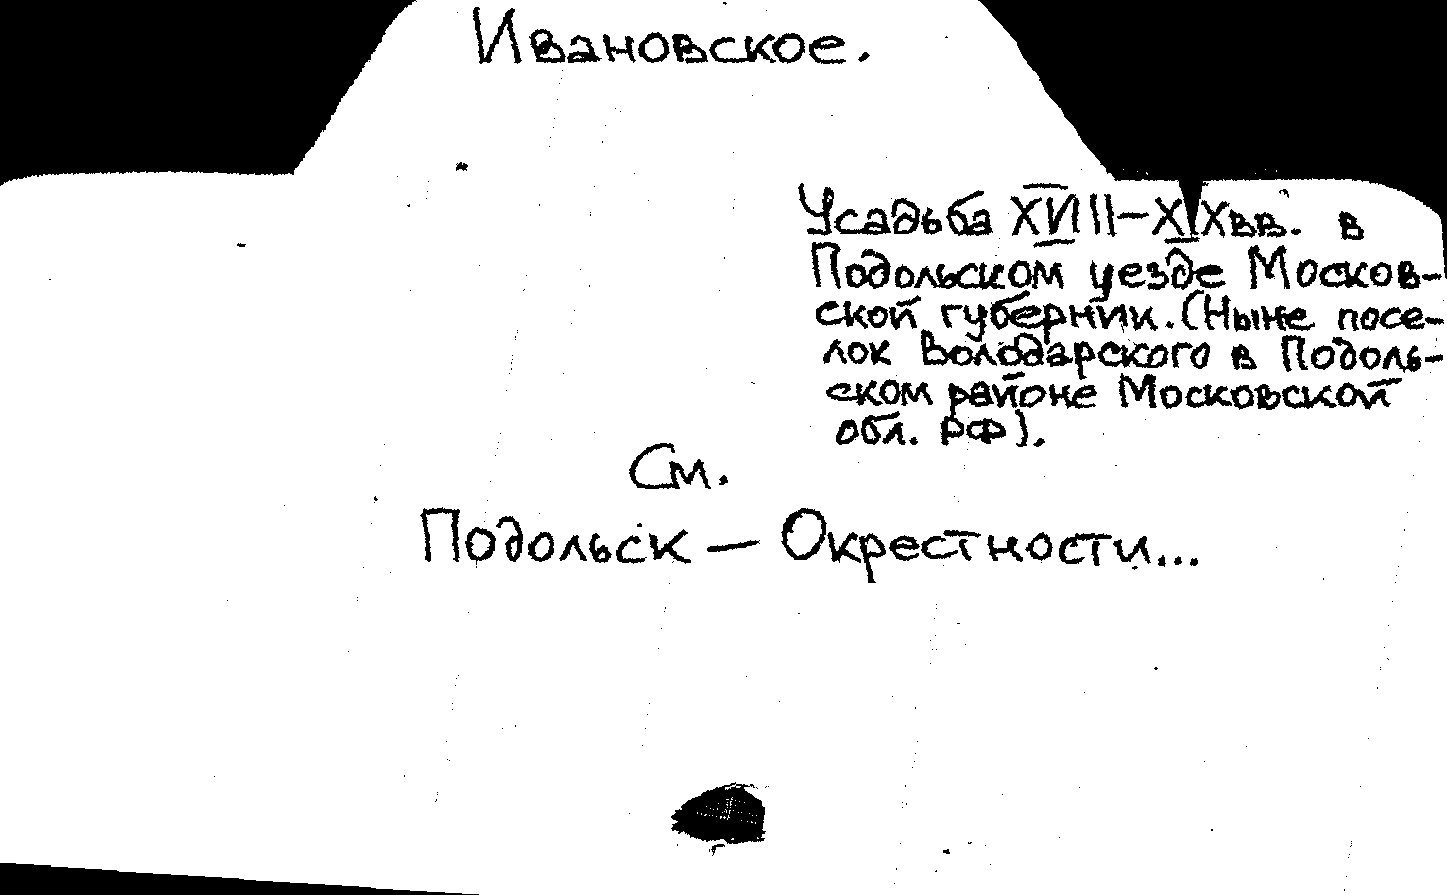 Ивановское.
Усадьба XVIII–XIX вв. в
Подольском уезде Москов-
ской губернии. (Ныне посе-
лок Володарского в Подоль-
ском районе Московской
обл. РФ).
См.
Подольск — Окрестности...